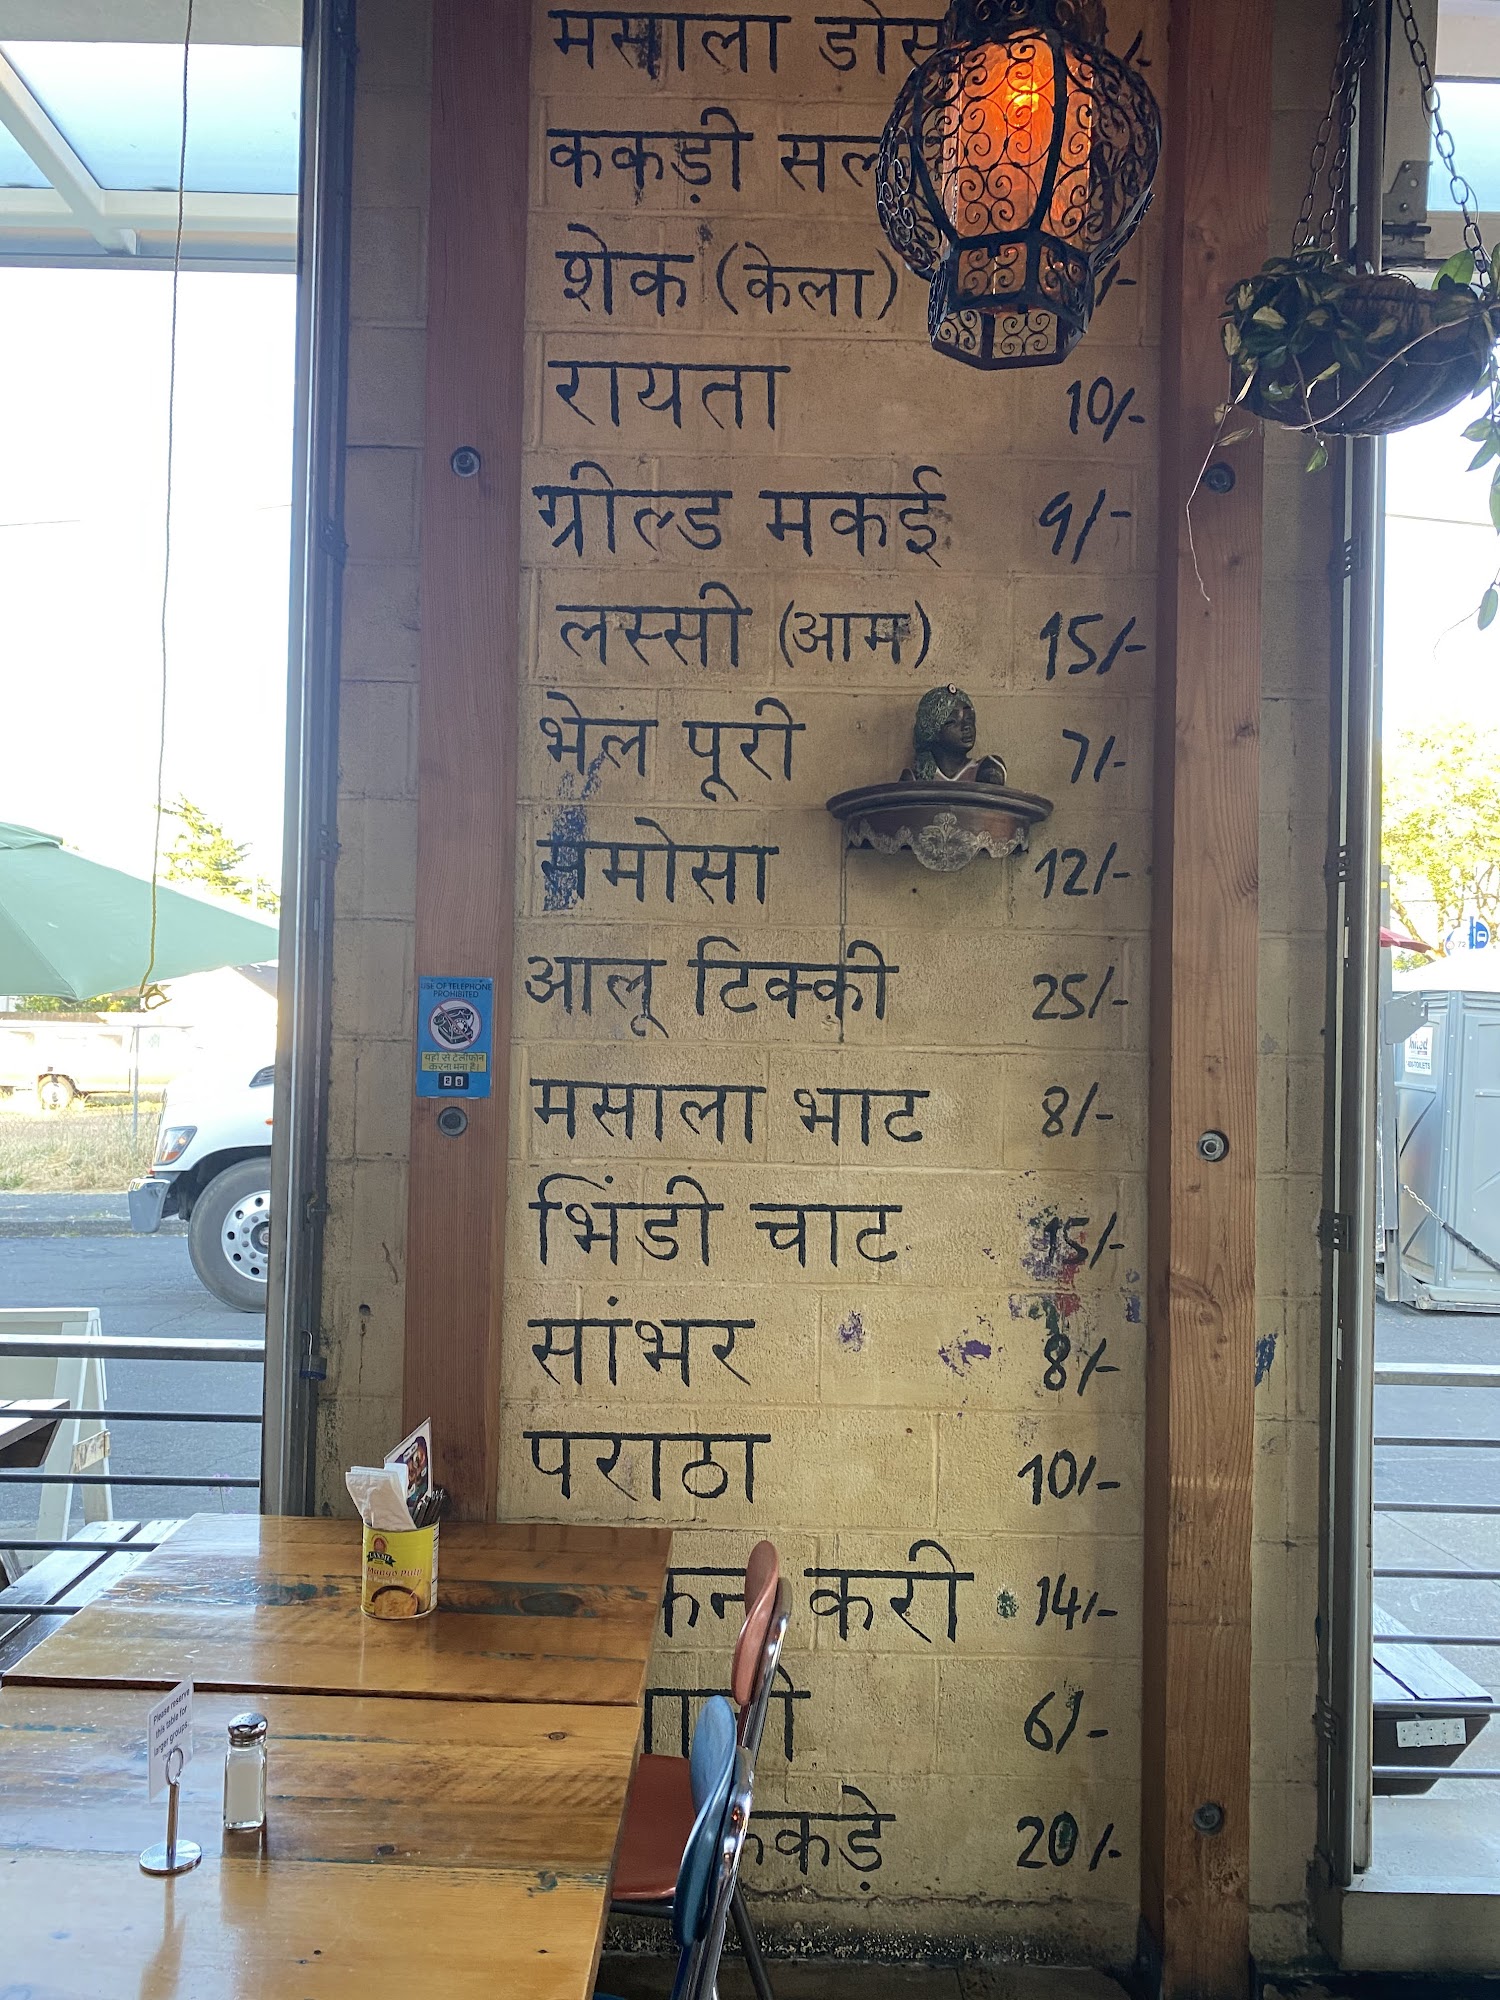 मसाला
ककड़ी
शेक (केला)
रायता 10/-
ग्रील्ड मकई 9/-
लस्सी (आम) 15/-
भेल पूरी 7/-
समोसा 12/-
आलू टिक्की 25/-
मसाला भाट 8/-
भिंडी चाट 15/-
सांभर 8/-
पराठा 10/-
करी 14/-
6/-
20/-
USE OF TELEPHONE
PROHIBITED
यहाँ से टेलीफोन
करना मना है।
LAXMI
Mango Pulp
Please reserve
this table for
larger groups.
72